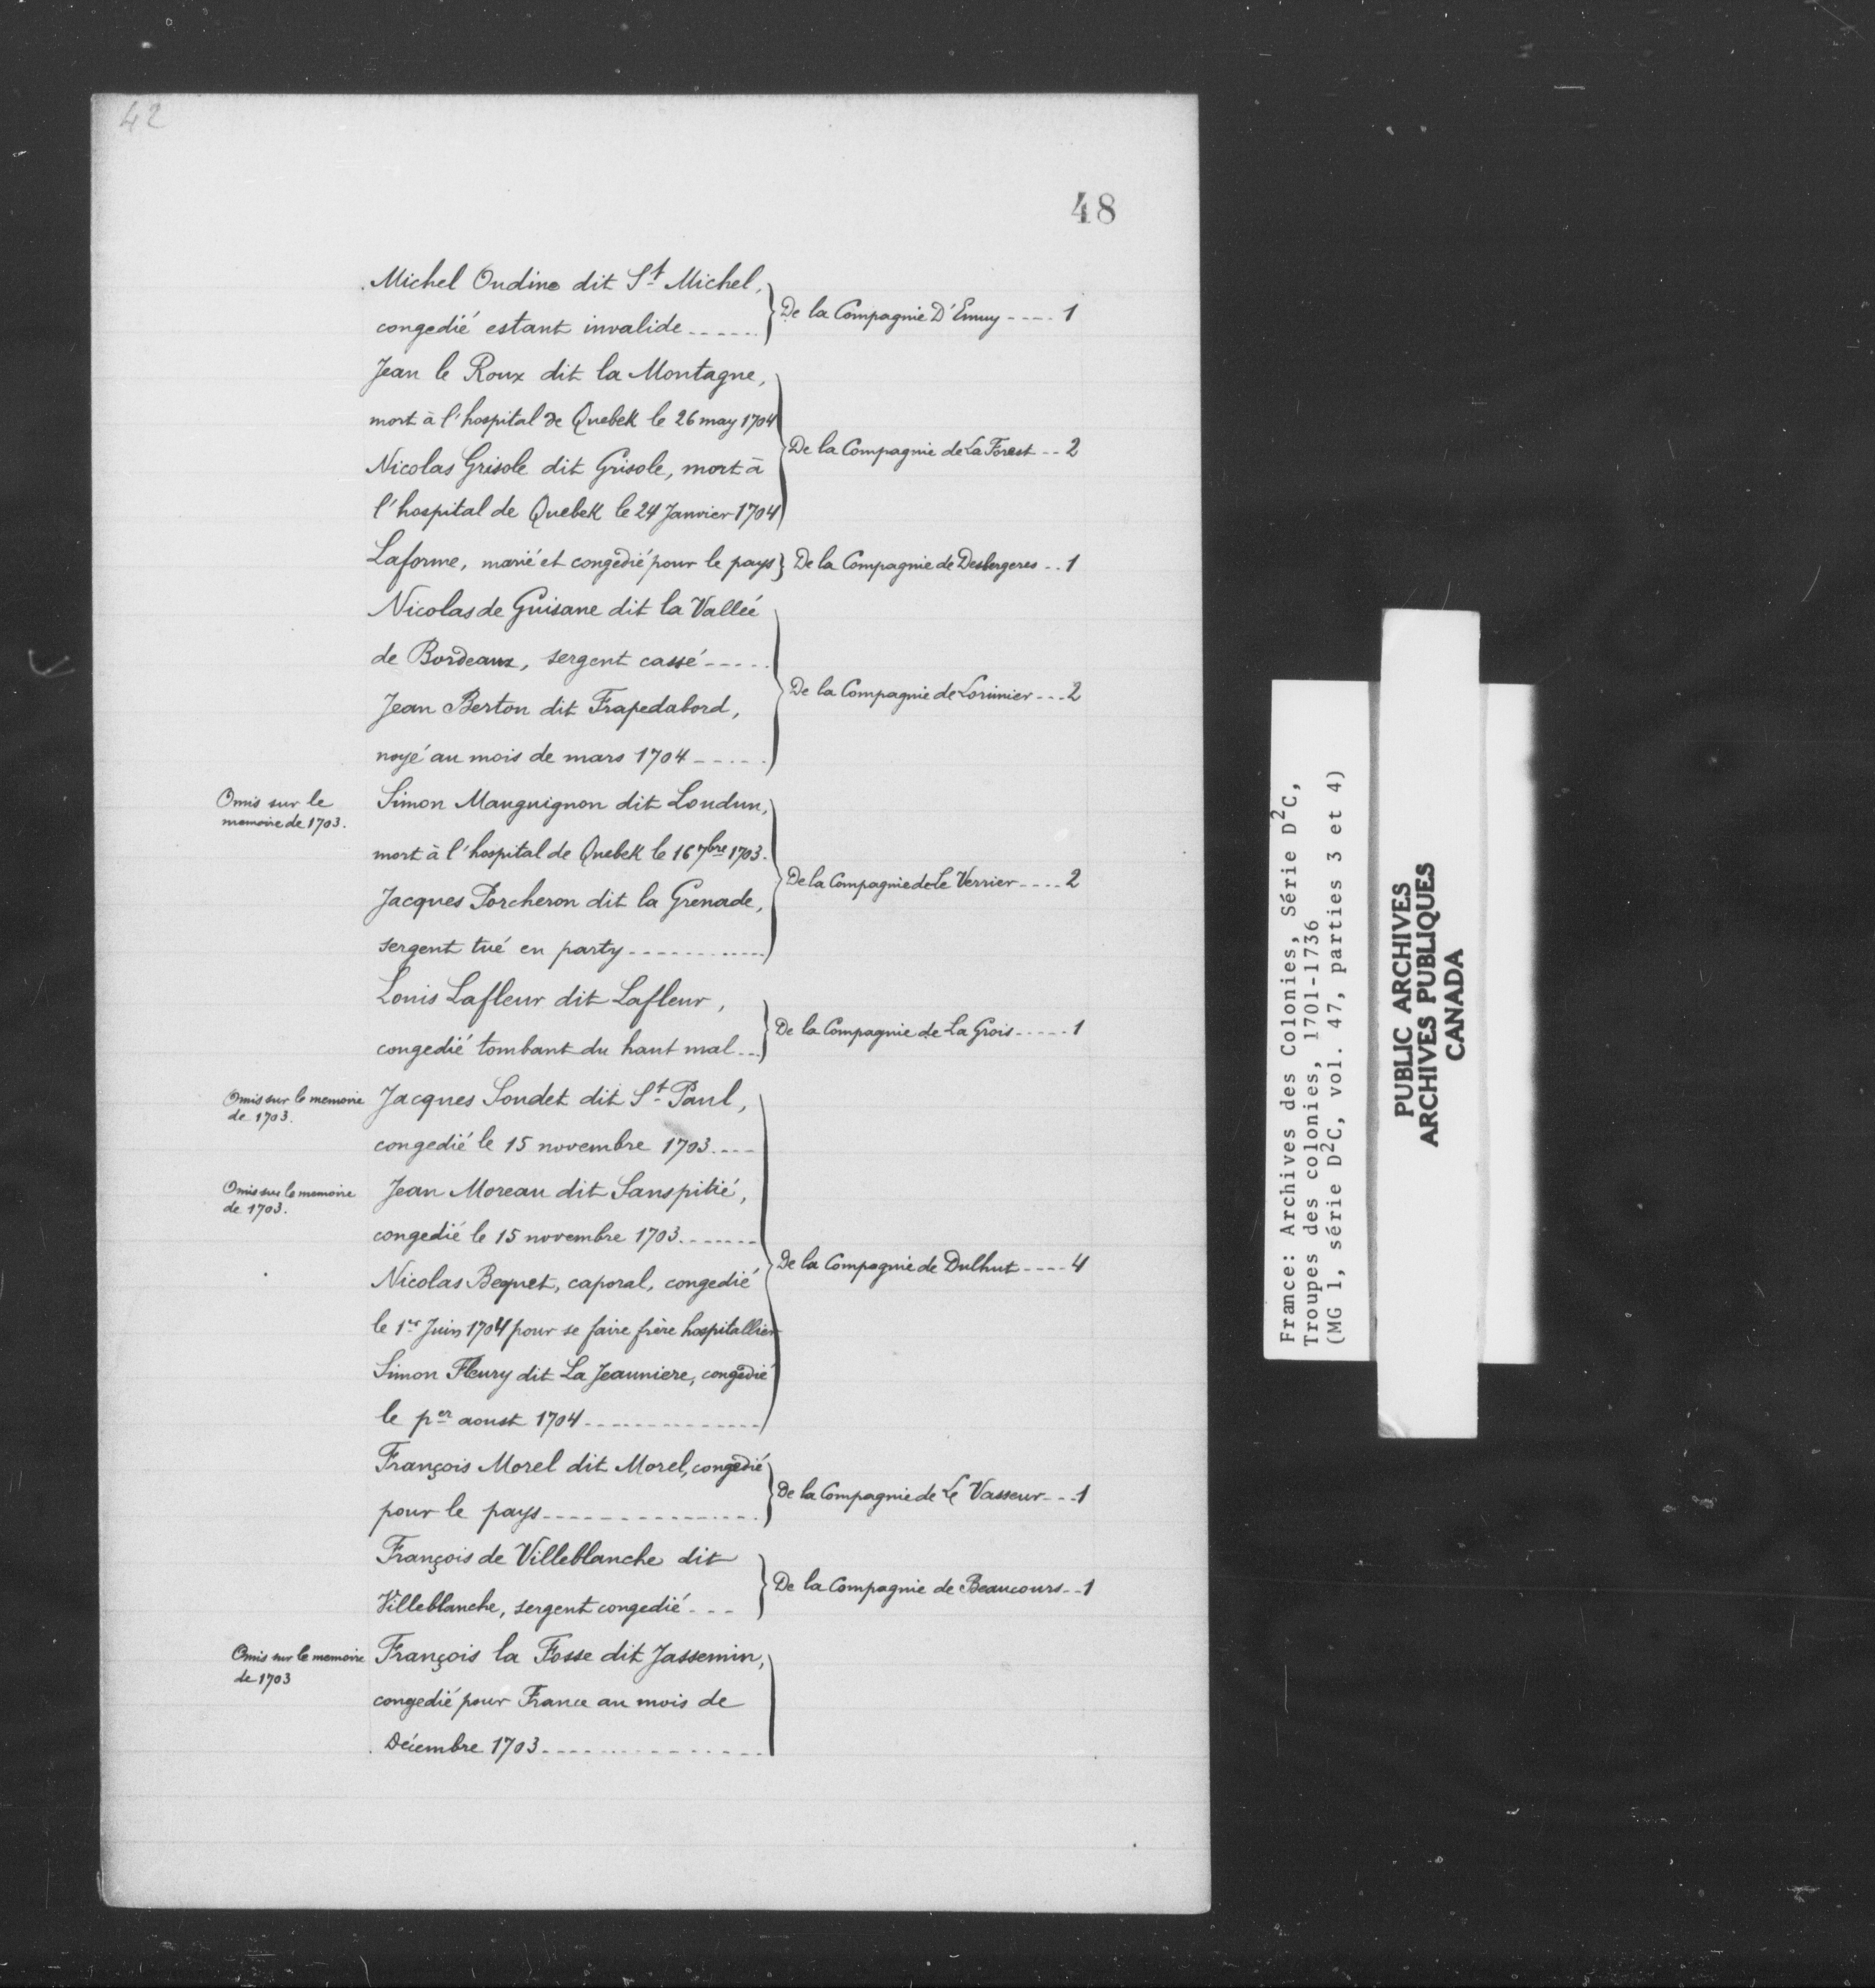 42
48
Michel Oudine dit St Michel,
congedié estant invalide
De la Compagnie D'Emuy ---- 1
Jean le Roux dit la Montagne,
mort à l'hospital de Quebek le 26 may 1704
Nicolas Grisole dit Grisole, mort à
l'hospital de Quebek le 24 Janvier 1704
De la Compagnie de La Forest -- 2
Laforme, marié et congedié pour le pays
De la Compagnie de Desbergeres -- 1
Nicolas de Guisane dit la Valleé
de Bordeaux, sergent cassé
Jean Berton dit Frapedabord,
noyé au mois de mars 1704
De la Compagnie de Lorimier --- 2
Omis sur le
memoire de 1703.
Simon Mauguignon dit Loudun,
mort à l'hospital de Quebek le 16 7bre 1703.
Jacques Porcheron dit la Grenade,
sergent tué en party
De la Compagnie de Le Verrier ---- 2
Louis Lafleur dit Lafleur,
congedié tombant du haut mal
De la Compagnie de La Grois ----- 1
Omis sur le memoire
de 1703.
Jacques Soudet dit St Paul,
congedié le 15 novembre 1703
Omis sur le memoire
de 1703.
Jean Moreau dit Sanspitié,
congedié le 15 novembre 1703
Nicolas Bequet, caporal, congedié
le 1er Juin 1704 pour se faire frère hospitallier
Simon Fleury dit La Jeauniere, congedié
le per aoust 1704
De la Compagnie de Dulhut ---- 4
François Morel dit Morel, congedié
pour le pays
De la Compagnie de Le Vasseur --- 1
François de Villeblanche dit
Villeblanche, sergent congedié
De la Compagnie de Beaucours -- 1
Omis sur le memoire
de 1703
François la Fosse dit Jassemin,
congedié pour France au mois de
Décembre 1703
France: Archives des Colonies, Série D2C,
Troupes des colonies, 1701-1736
(MG 1, série D2C, vol. 47, parties 3 et 4)
PUBLIC ARCHIVES
ARCHIVES PUBLIQUES
CANADA